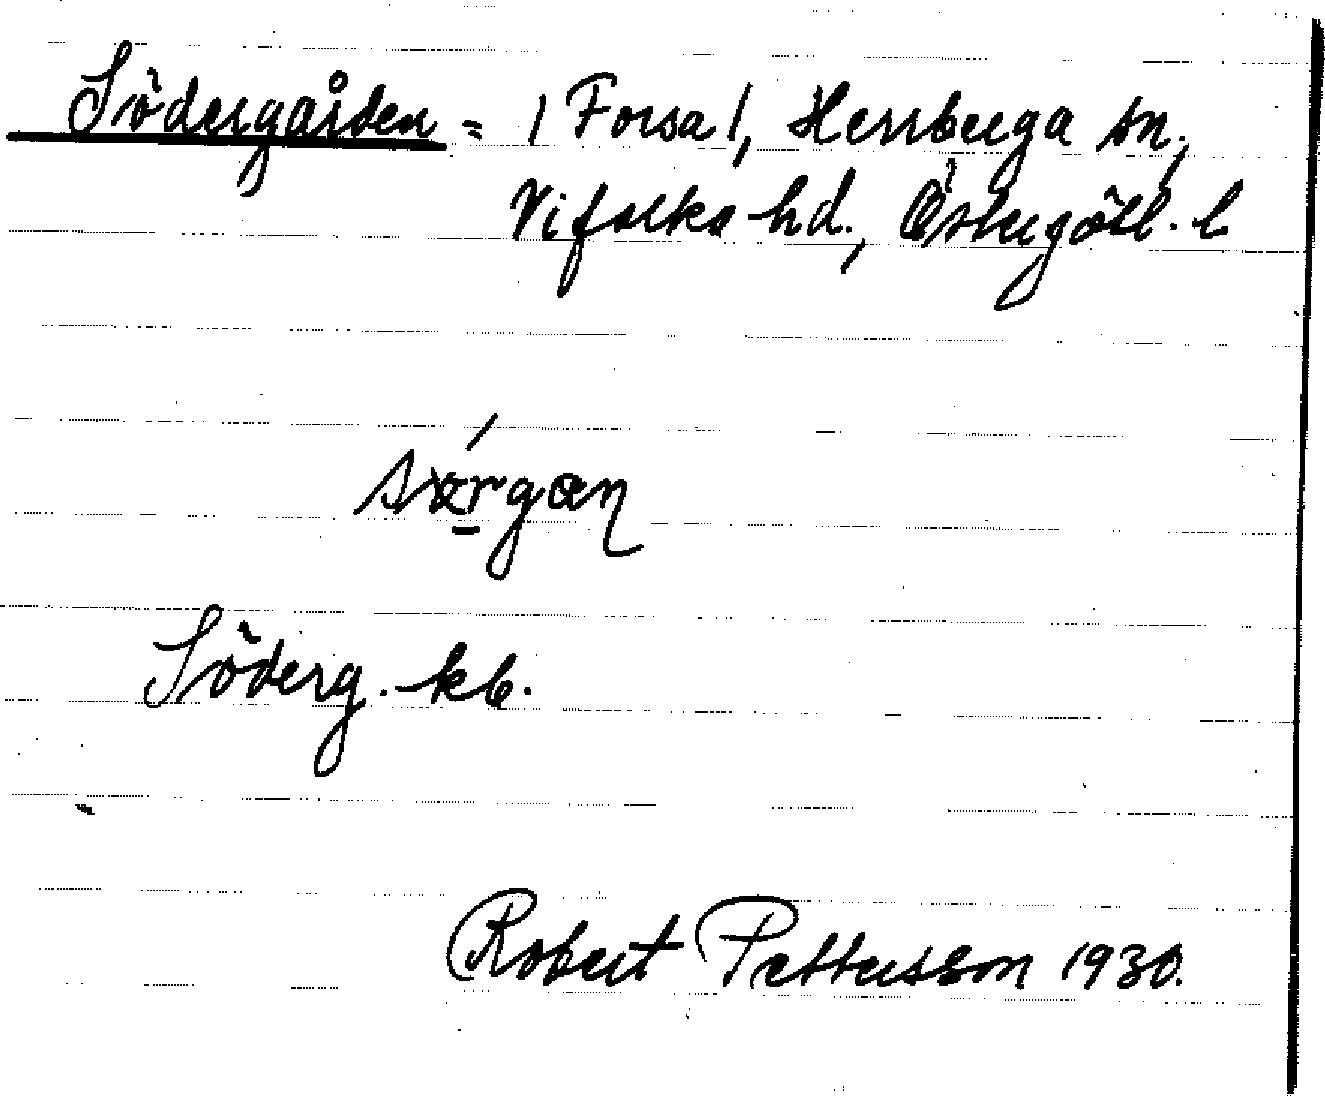 Södergården = / Forsa /, Herrberga sn,
Vifolka hd., Östergötl. l
sörgan
Söderg. kb.
Robert Pettersson 1930.